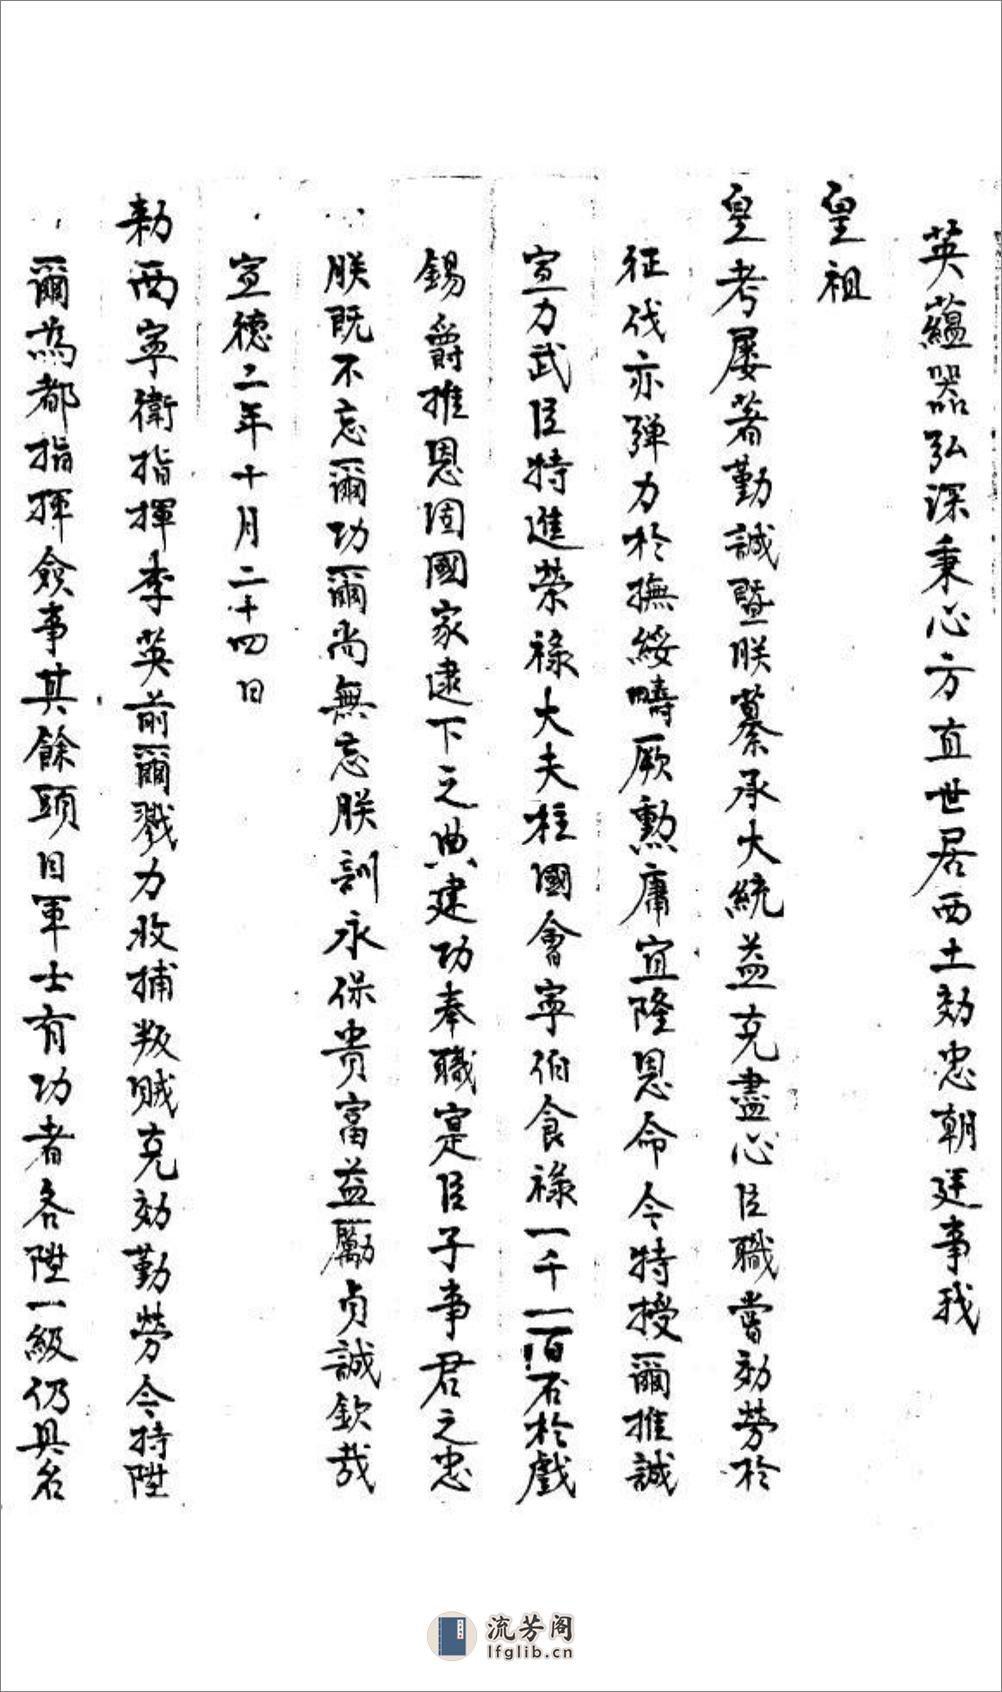 英蘊器弘深秉心方直世居西土効忠朝廷事我
皇祖
皇考屡著勤誠暨朕纂承大統益克盡心臣職嘗効勞於
征伐亦殫力於撫綏疇厥勲庸宜隆恩命今特授爾推誠
宣力武臣特進榮祿大夫柱國會寜伯食祿一千一百石於戲
錫爵推恩固國家逮下之典建功奉職寔臣子事君之忠
朕既不忘爾功爾尚無忘朕訓永保貴富益勵貞誠欽哉
宣德二年十月二十四日
勅西寜衛指揮李英前爾戮力收捕叛賊克効勤勞今特陞
爾為都指揮僉事其餘頭目軍士有功者各陞一級仍具名
流芳阁
lfglib.cn